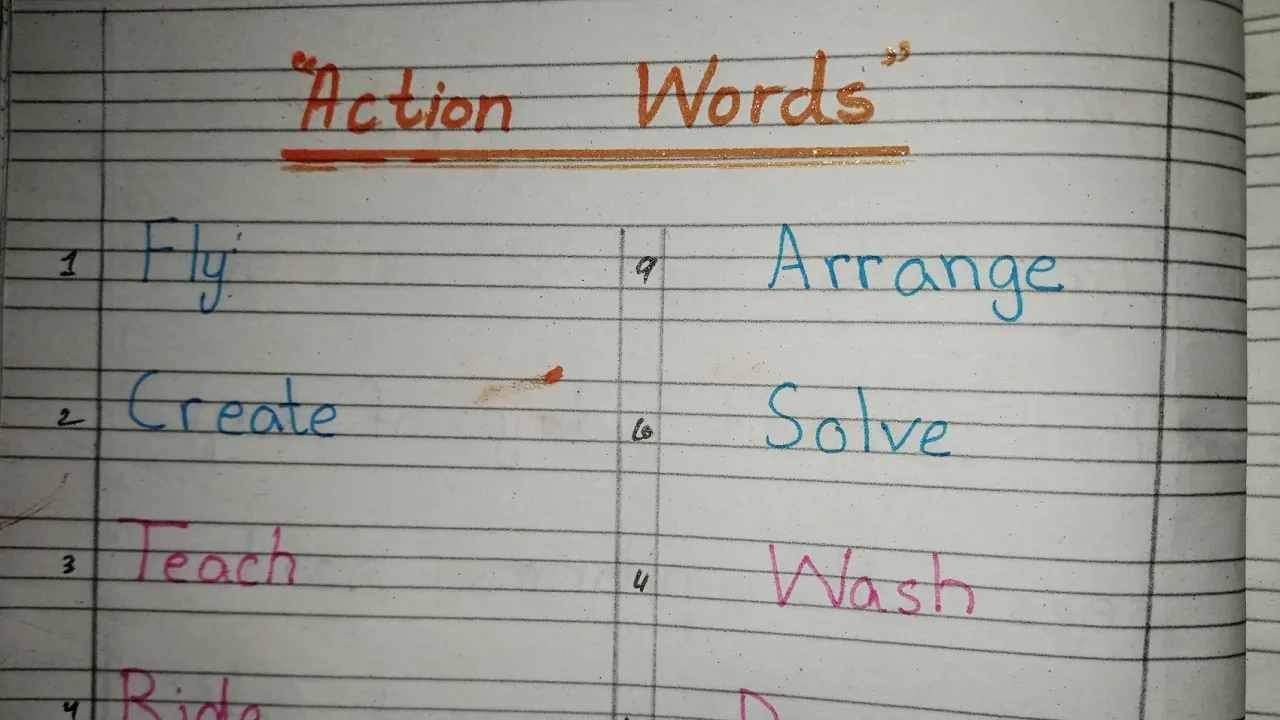 "Action Words"
1 Fly 9 Arrange
2 Create 6 Solve
3 Teach 4 Wash
4 Ride